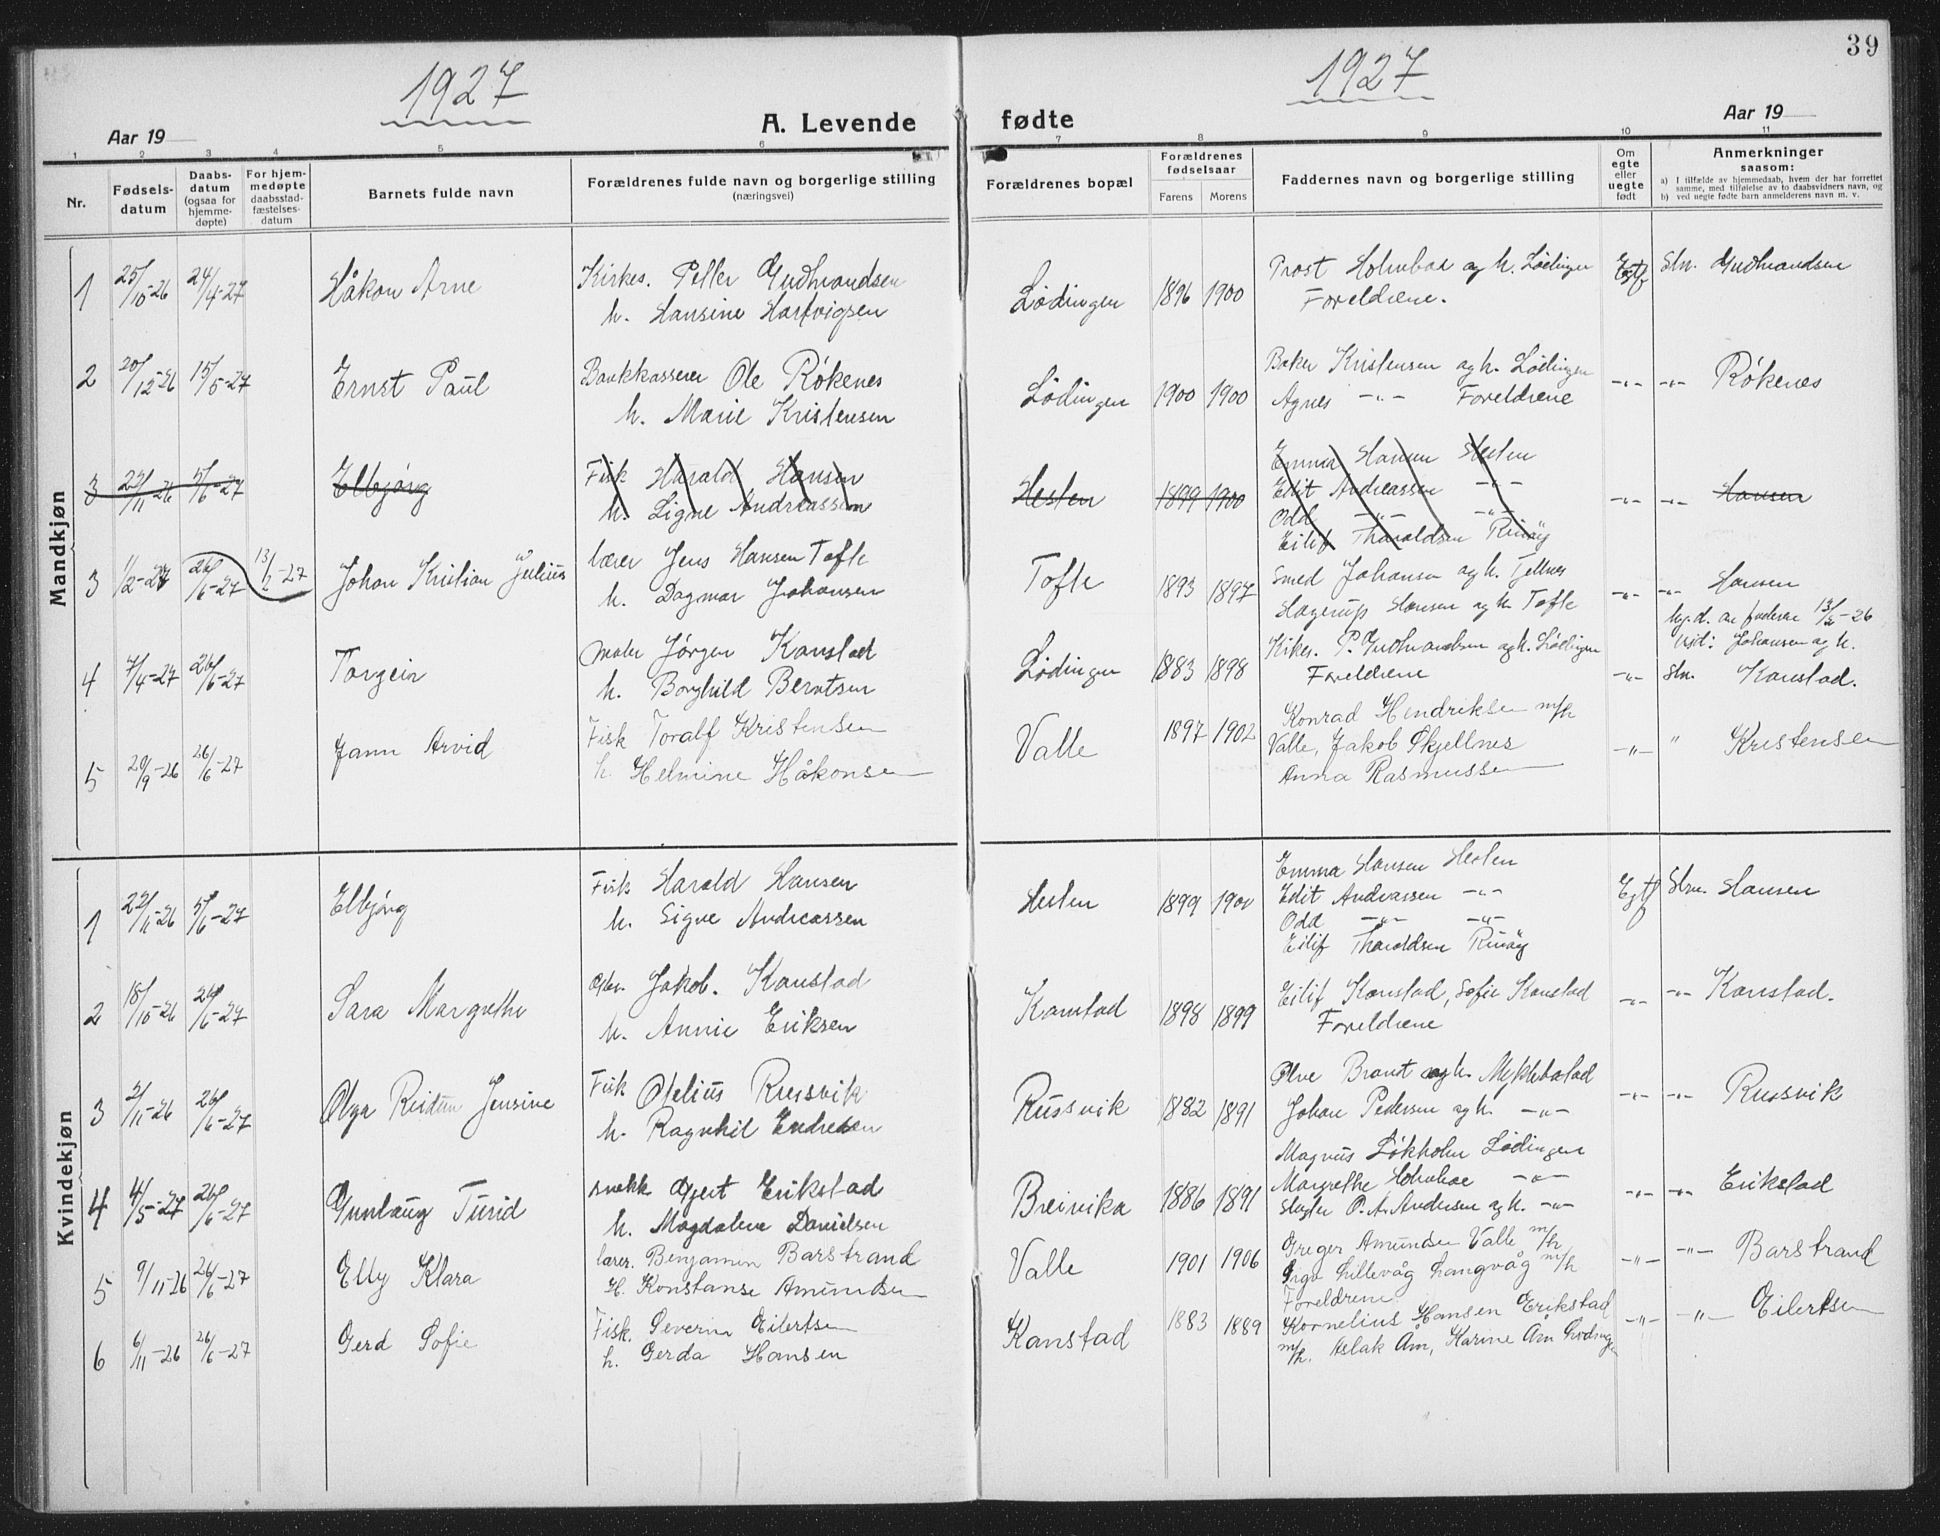 39
1927
1927
Aar 19
A. Levende
fødte
Aar 19
1 2 3 4 5 6 7 8 9 10 11
Nr.
Fødsels-
datum
Daabs-
datum
(ogsaa for
hjemme-
døpte)
For hjem-
medøpte
daabsstad-
fæstelses-
datum
Barnets fulde navn
Forældrenes fulde navn og borgerlige stilling
(næringsvei)
Forældrenes bopæl
Forældrenes
fødselsaar
Farens Morens
Faddernes navn og borgerlige stilling
Om
egte
eller
uegte
født
Anmerkninger
saasom:
a) I tilfælde av hjemmedaab, hvem der har forrettet
samme, med tilføielse av to daabsvidners navn, og
b) ved uegte fødte barn anmelderens navn m. v.
Mandkjøn
1 25/10-26 24/4-27 Håkon Arne
Kirkes. Peller Gudmandsen
h. Hansine Hartvigsen
Lødingen 1896 1900
Prost Holmboe og h. Lødingen
Foreldrene.
Egtf Stn. Gudmandsen
2 20/12-26 15/5-27 Ernst Paul
Bankkasserer Ole Røkenes
h. Marie Kristensen
Lødingen 1900 1900
Baker Kristensen og h. Lødingen
Agnes -"- Foreldrene
-"- -"- Røkenes
3 22/11-26 5/6-27 Elbjørg
Fisk Harald Hansen
h. Signe Andreassen
Hesten 1899 1900
Emma Hansen Hesten
Edit Andreassen -"-
Odd -"- -"-
Eilif Tharaldsen Rinøy
-"- -"- Hansen
3 1/2-27 26/6-27 13/2-27 Johan Kristian Julius
lærer Jens Hansen Tofte
h. Dagmar Johansen
Tofte 1893 1897
Smed Johansen og h. Tjellnes
Hagerup Hansen og h. Tofte
-"- -"- Hansen
hj.d. av faderen 13/2-26
vid: Johansen og h.
4 7/4-27 26/6-27 Torgeir
maler Jørgen Kanstad
h. Borghild Berntsen
Lødingen 1883 1898
Kirkes. P. Gudmandsen og h. Lødingen
Foreldrene
-"- Stn. Kanstad.
5 20/9-26 26/6-27 Jann Arvid
Fisk Toralf Kristensen
h. Helmine Håkonsen
Valle 1897 1902
Konrad Hendriksen m/h
Valle, Jakob Skjellnes
Anna Rasmussen
-"- " Kristensen
Kvindekjøn
1 22/11-26 5/6-27 Elbjørg
Fisk Harald Hansen
h. Signe Andreassen
Hesten 1899 1900
Emma Hansen Hesten
Edit Andreassen -"-
Odd -"- -"-
Eilif Tharaldsen Rinøy
Egtf Stn. Hansen
2 18/10-26 26/6-27 Sara Margrethe
Jakob. Kanstad
h. Annie Eriksen
Kanstad 1898 1899
Eilif Kanstad, Sofie Kanstad
Foreldrene
-"- -"- Kanstad.
3 2/11-26 26/6-27 Olga Reidun Jensine
Fisk Otelius Russvik
h. Ragnhil Endresen
Russvik 1882 1891
Brandt og h. Myklebostad
Johan Pedersen og h. -"-
-"- -"- Russvik
4 4/5-27 26/6-27 Gunlaug Turid
snekk Gjert Erikstad
h. Magdalene Danielsen
Breivika 1886 1891
Magnus Løkholm Lødingen
Margrethe Holmboe -"-
Slagter O. A. Andersen og h. -"-
-"- -"- Erikstad
5 9/11-26 26/6-27 Elly Klara
lærer. Benjamin Barstrand
H. Konstanse Amundsen
Valle 1901 1906
Greger Amundsen Valle m/h
Inga Lillevåg Langvåg m/h
Foreldrene
-"- -"- Barstrand
6 6/11-26 26/6-27 Gerd Sofie
Fisk. Severin Eilertsen
h. Gerda Hansen
Kanstad 1883 1889
Kornelius Hansen Erikstad
m/h. Aslak Åm, Karine Åm Lødingen
-"- -"- Eilertsen